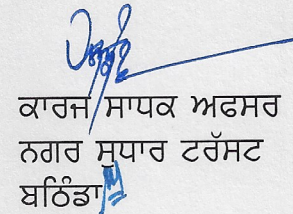 ਕਾਰਜ ਸਾਧਕ ਅਫਸਰ
ਨਗਰ ਸੁਧਾਰ ਟਰੱਸਟ
ਬਠਿੰਡਾ